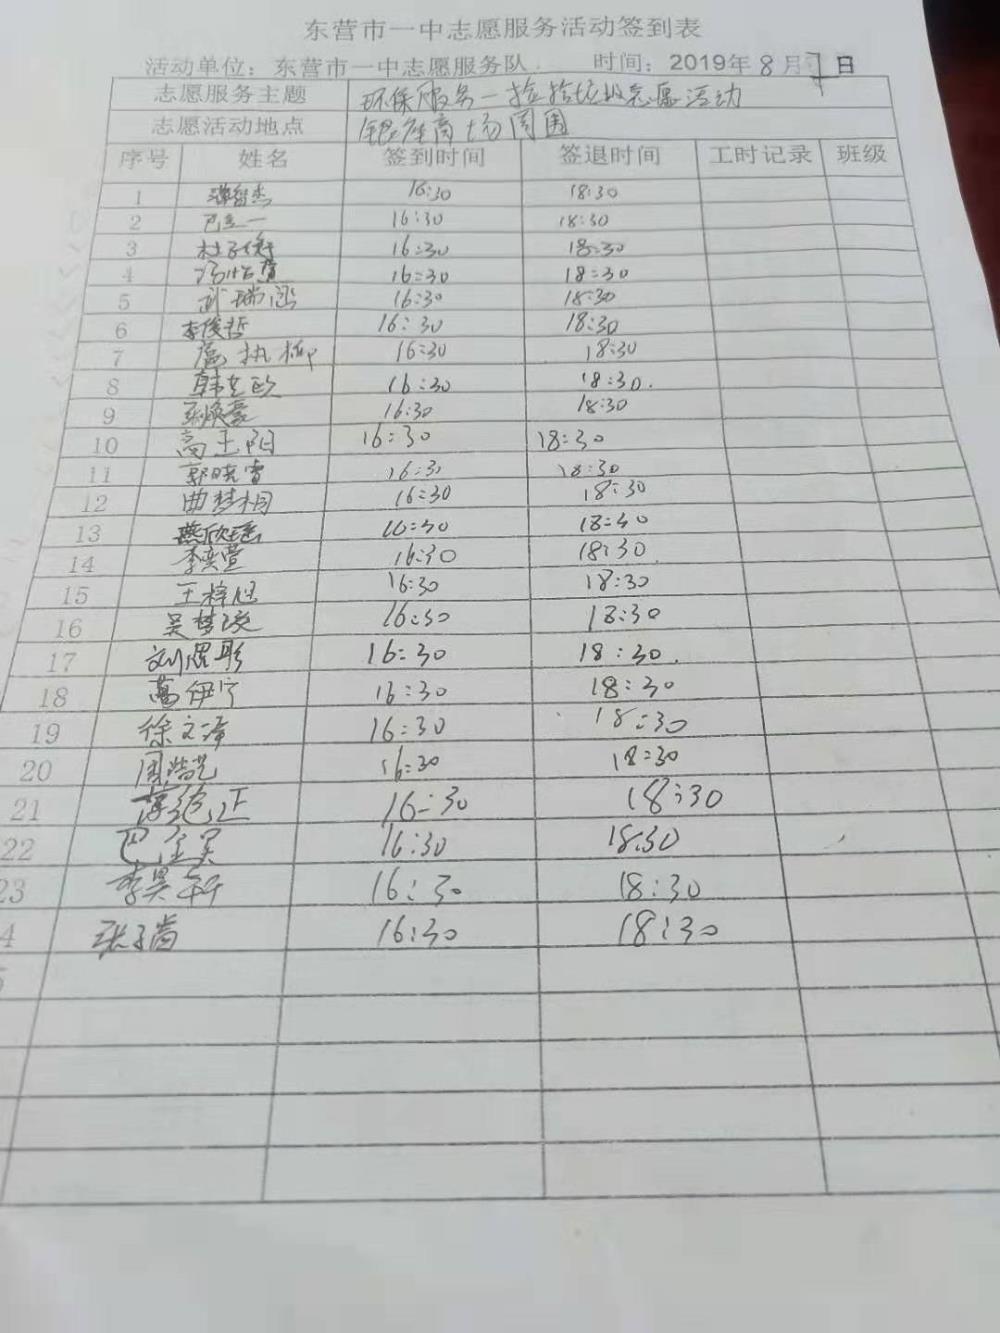 东营市一中志愿服务活动签到表
活动单位：东营市一中志愿服务队 时间：2019年8月7日
志愿服务主题 环保服务—捡拾垃圾志愿活动
志愿活动地点 银座商场周围
序号 姓名 签到时间 签退时间 工时记录 班级
1 智杰 16:30 18:30
2 巴立一 16:30 18:30
3 杜子 16:30 18:30
4 16:30 18:30
5 武瑞涵 16:30 18:30
6 李俊哲 16:30 18:30
7 扈执柳 16:30 18:30
8 韩欧 16:30 18:30.
9 焕豪 16:30 18:30
10 高玉阳 16:30 18:30
11 郭晓雪 16:30 18:30
12 曲梦桐 16:30 18:30
13 燕欣瑶 16:30 18:30
14 李奕萱 16:30 18:30
15 王梓旭 16:30 18:30
16 吴梦 16:30 18:30
17 刘思彤 16:30 18:30.
18 葛伊宁 16:30 18:30
19 徐文泽 16:30 18:30
20 周浩 16:30 18:30
21 正 16:30 18:30
22 巴昊 16:30 18:30
23 李昊轩 16:30 18:30
4 张子尚 16:30 18:30